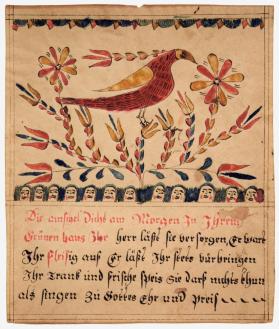 Die amsel Dicht am Morgen In Ihrem
Grünen haus Ihr herr läßt sie versorgen, Er wart
Ihr fleisig auf Er läßt Ihr stets vürbringen
Ihr Trank und frische speis Sie darf nichts thun
als singen Zu Gottes Ehr und Preis